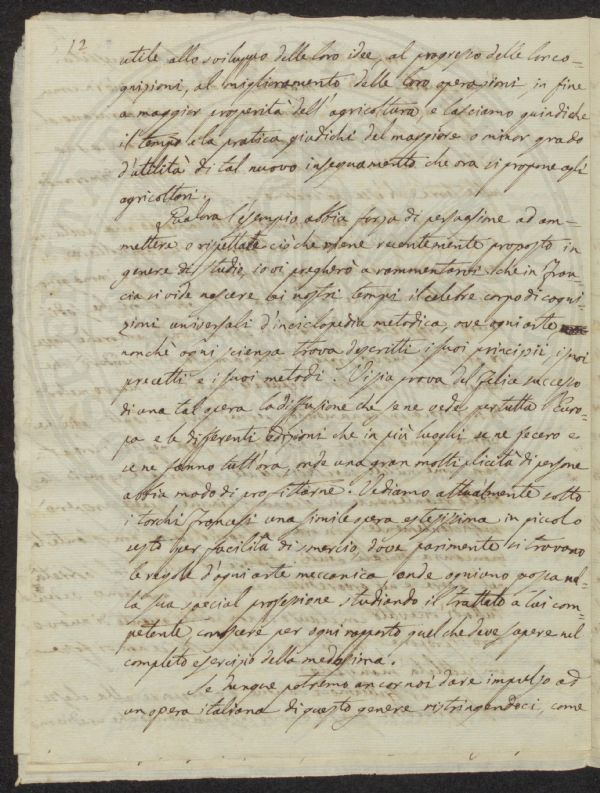 12
utile allo sviluppo delle loro idee, al progresso delle lor co-
gnizioni, al miglioramento delle loro operazioni, in fine
a maggior prosperità dell'agricoltura, e lasciamo quindi che
il tempo e la pratica giudichi del maggiore o minor grado
d'utilità di tal nuovo insegnamento che ora si propone agli
agricoltori.
Qualora l'esempio abbia forza di persuasione ad am-
mettere o rispettare ciò che viene recentemente proposto in
genere di studio, io vi pregherò a rammentarvi che in Fran-
cia si vide nascere ai nostri tempi il celebre corpo di cogni-
zioni universali d'inciclopedia metodica, ove ogni arte
nonchè ogni scienza trova descritti i suoi principii, i suoi
precetti e i suoi metodi. Vi sia prova del felice successo
di una tal opera la diffusione che se ne vede per tutta l'Euro-
pa e le differenti edizioni che in più luoghi se ne fecero e
se ne fanno tutt'ora, onde una gran molteplicità di persone
abbia modo di profittarne. Vediamo attualmente sotto
i torchi francesi una simile opera estesissima in piccolo
sesto per facilità di smercio, dove parimente si trovano
le regole d'ogni arte meccanica, onde ogniuno possa nel-
la sua special professione studiando il trattato a lui com-
petente, conoscere per ogni rapporto quel che deve sapere nel
completo esercizio della medesima.
Se dunque potremo ancor noi dare impulso ad
un opera italiana di questo genere ristringendoci, come